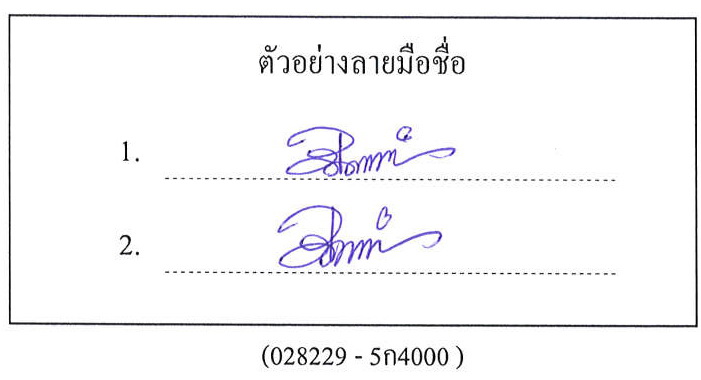 ตัวอย่างลายมือชื่อ
1.
2.
(028229 - 5ก4000 )